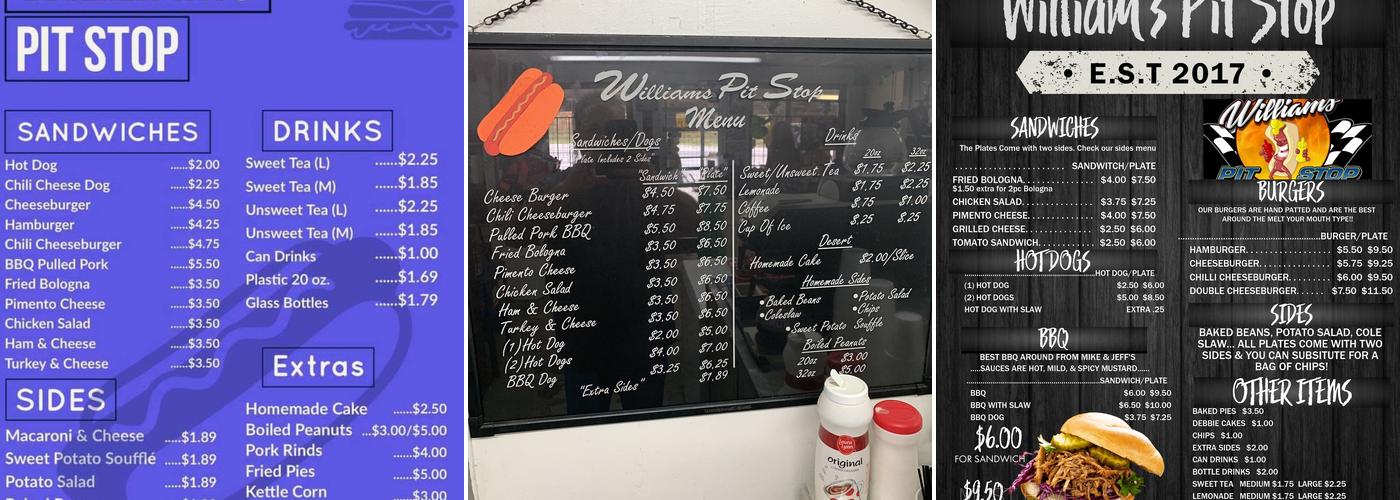 PIT STOP
SANDWICHES
Hot Dog .....$2.00
Chili Cheese Dog .....$2.25
Cheeseburger .....$4.50
Hamburger .....$4.25
Chili Cheeseburger .....$4.75
BBQ Pulled Pork .....$5.50
Fried Bologna .....$3.50
Pimento Cheese .....$3.50
Chicken Salad .....$3.50
Ham & Cheese .....$3.50
Turkey & Cheese .....$3.50
SIDES
Macaroni & Cheese .....$1.89
Sweet Potato Soufflé .....$1.89
Potato Salad .....$1.89
DRINKS
Sweet Tea (L) ......$2.25
Sweet Tea (M) ......$1.85
Unsweet Tea (L) ......$2.25
Unsweet Tea (M) ......$1.85
Can Drinks ......$1.00
Plastic 20 oz. ......$1.69
Glass Bottles ......$1.79
Extras
Homemade Cake ......$2.50
Boiled Peanuts ...$3.00/$5.00
Pork Rinds ......$4.00
Fried Pies ......$5.00
Kettle Corn ......$3.00
Williams Pit Stop
Menu
Sandwiches/Dogs
"Plate Includes 2 Sides"
"Sandwich" "Plate"
Cheese Burger $4.50 $7.50
Chili Cheeseburger $4.75 $7.75
Pulled Pork BBQ $5.50 $8.50
Fried Bologna $3.50 $6.50
Pimento Cheese $3.50 $6.50
Chicken Salad $3.50 $6.50
Ham & Cheese $3.50 $6.50
Turkey & Cheese $3.50 $6.50
(1)Hot Dog $2.00 $5.00
(2)Hot Dogs $4.00 $7.00
BBQ Dog $3.25 $6.25
"Extra Sides" $1.89
Drinks
20oz 32oz
Sweet/Unsweet Tea $1.75 $2.25
Lemonade $1.75 $2.25
Coffee $.75 $1.00
Cup Of Ice $.25 $.25
Desert
Homemade Cake $2.00/Slice
Homemade Sides
•Baked Beans •Potato Salad
•Coleslaw •Chips
•Sweet Potato Souffle
Boiled Peanuts
20oz $3.00
32oz $5.00
original
William's Pit Stop
• E.S.T 2017 •
SANDWICHES
The Plates Come with two sides. Check our sides menu
SANDWITCH/PLATE
FRIED BOLOGNA $4.00 $7.50
$1.50 extra for 2pc Bologna
CHICKEN SALAD $3.75 $7.25
PIMENTO CHEESE $4.00 $7.50
GRILLED CHEESE $2.50 $6.00
TOMATO SANDWICH $2.50 $6.00
HOTDOGS
HOT DOG/PLATE
(1) HOT DOG $2.50 $6.00
(2) HOT DOGS $5.00 $8.50
HOT DOG WITH SLAW EXTRA .25
BBQ
BEST BBQ AROUND FROM MIKE & JEFF'S
.....SAUCES ARE HOT, MILD, & SPICY MUSTARD......
SANDWICH/PLATE
BBQ $6.00 $9.50
BBQ WITH SLAW $6.50 $10.00
BBQ DOG $3.75 $7.25
$6.00
FOR SANDWICH
$9.50
Williams
PIT STOP
BURGERS
OUR BURGERS ARE HAND PATTED AND ARE THE BEST
AROUND THE MELT YOUR MOUTH TYPE!!
BURGER/PLATE
HAMBURGER $5.50 $9.50
CHEESEBURGER $5.75 $9.25
CHILLI CHEESEBURGER $6.00 $9.50
DOUBLE CHEESEBURGER $7.50 $11.50
SIDES
BAKED BEANS, POTATO SALAD, COLE
SLAW... ALL PLATES COME WITH TWO
SIDES & YOU CAN SUBSITUTE FOR A
BAG OF CHIPS!
OTHER ITEMS
BAKED PIES $3.50
DEBBIE CAKES $1.00
CHIPS $1.00
EXTRA SIDES $2.00
CAN DRINKS $1.00
BOTTLE DRINKS $2.00
SWEET TEA MEDIUM $1.75 LARGE $2.25
LEMONADE MEDIUM $1.75 LARGE $2.25